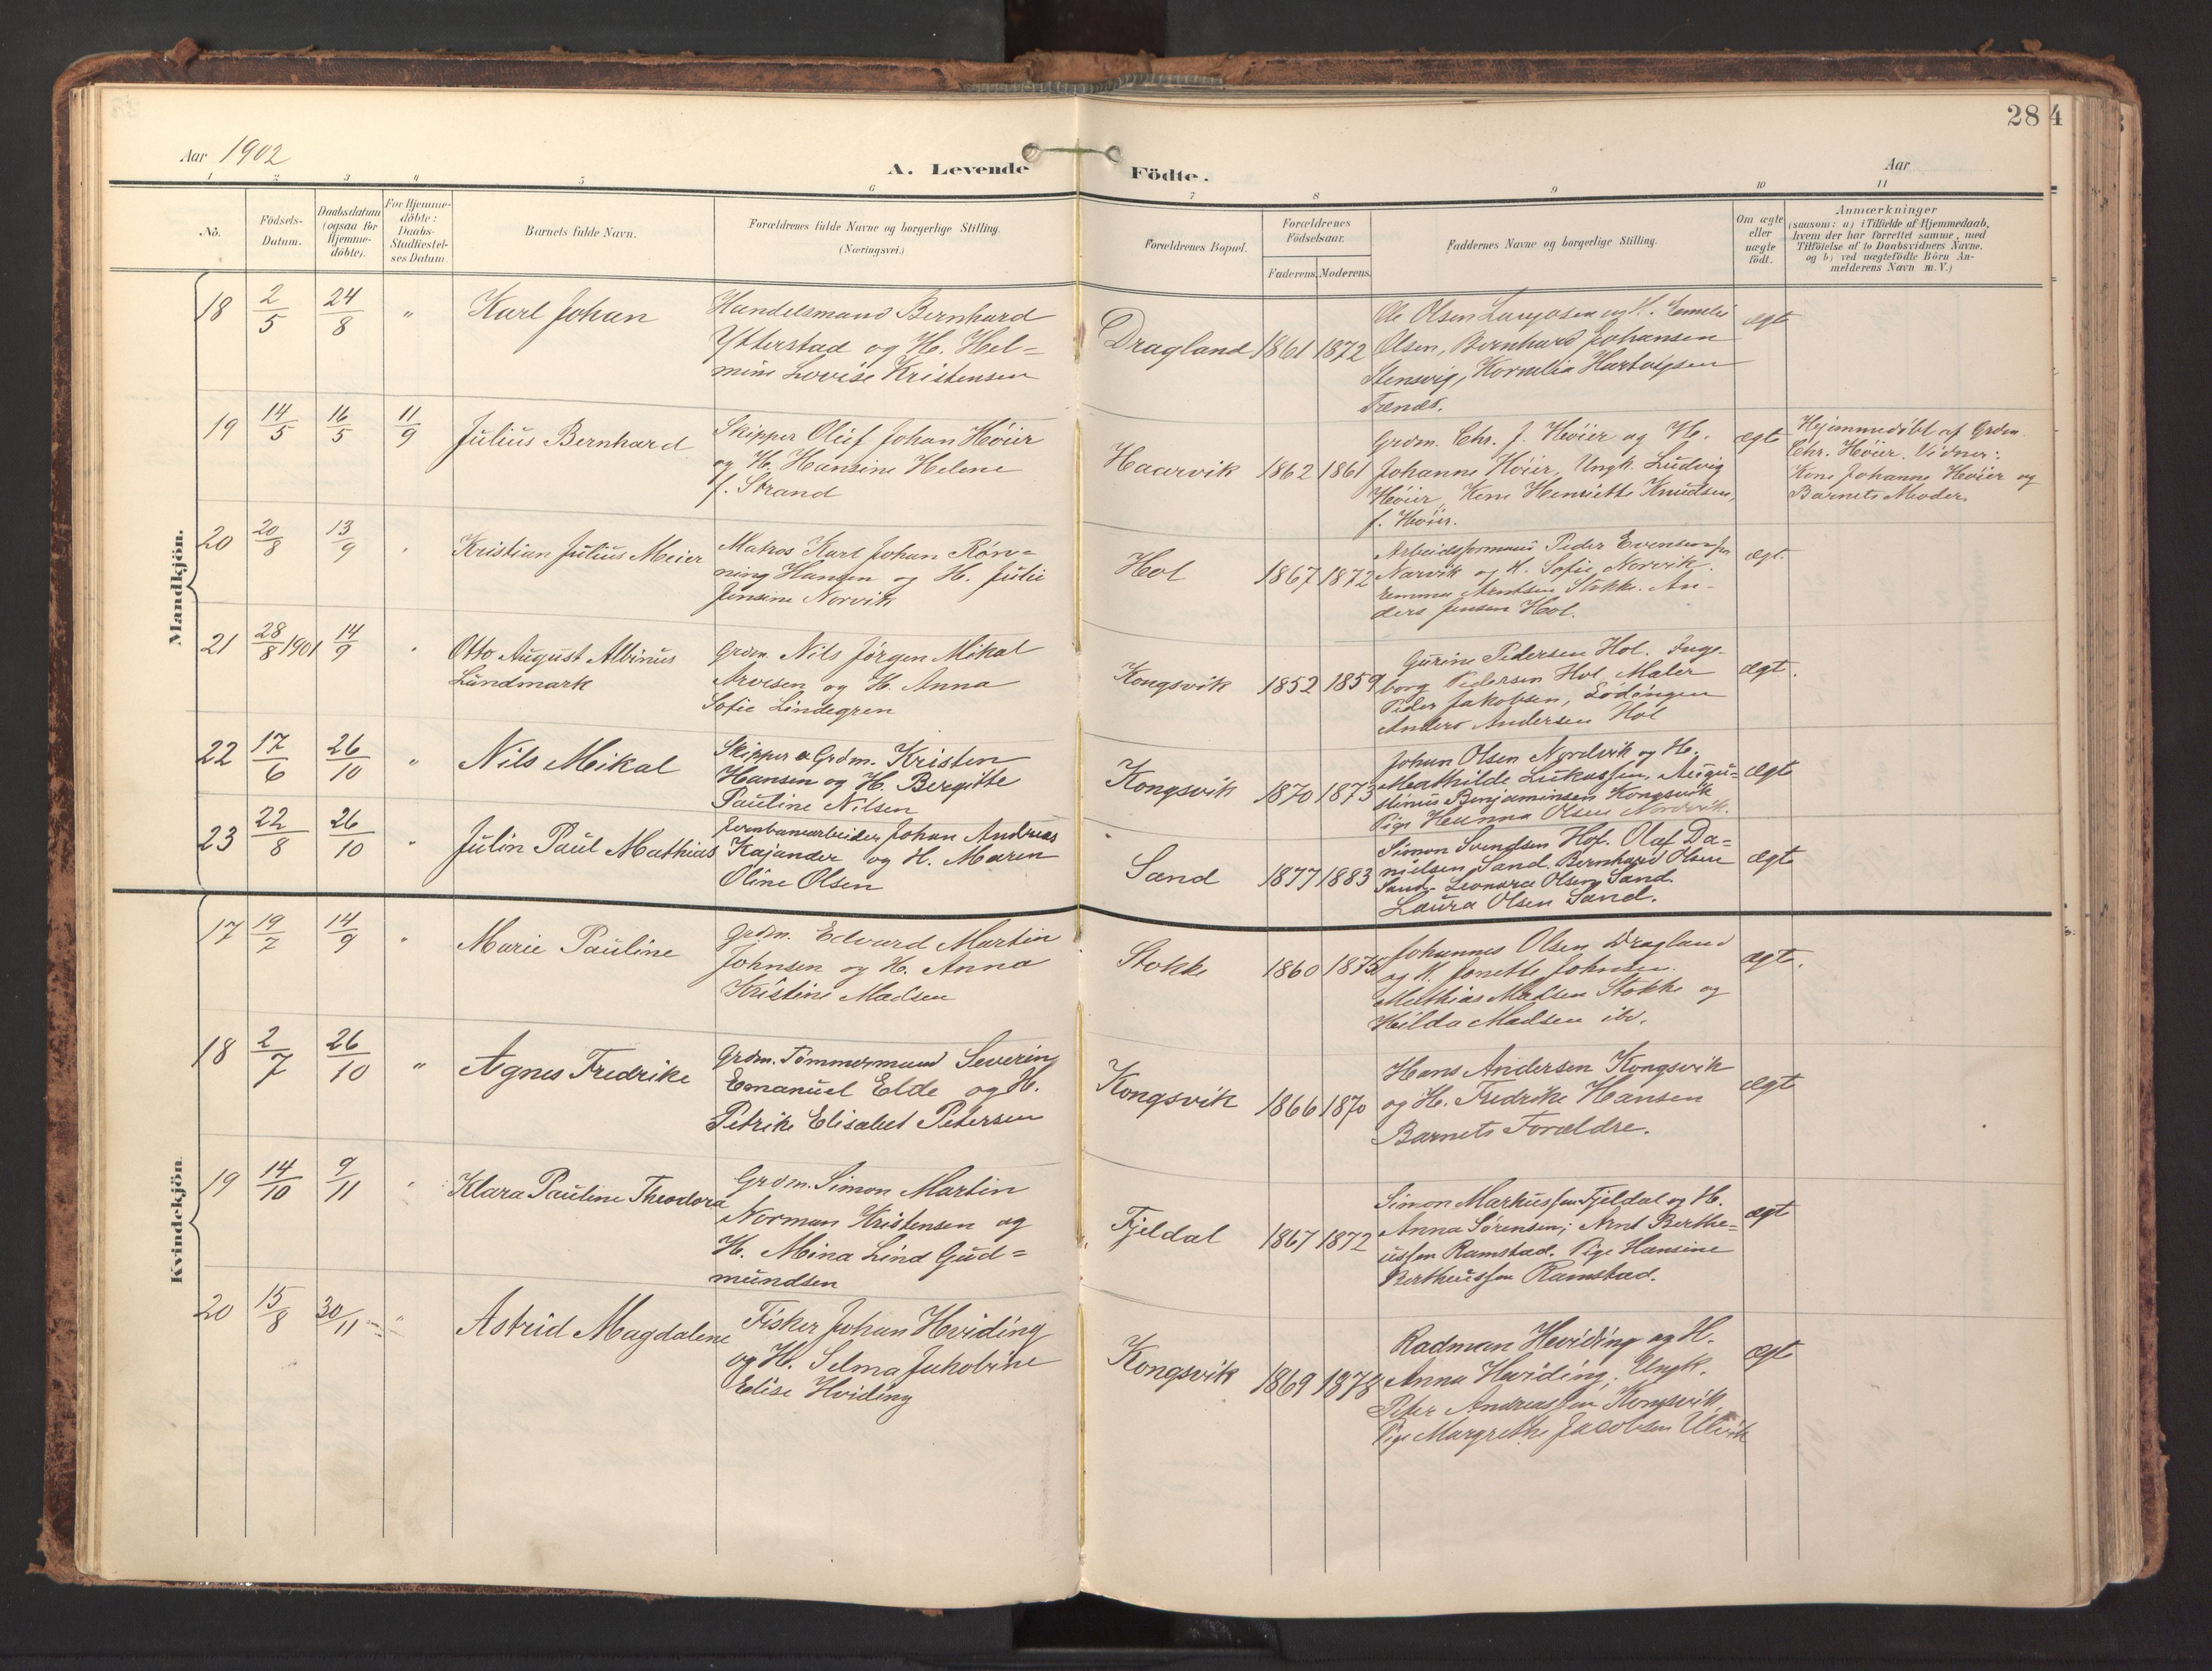 Aar 1902
A. Levende Födte.
28
4
Aar
1 2 3 4 5 6 7 8 9 10 11
No.
Födsels-
Datum.
Daabsdatum
(ogsaa for
Hjemme-
döbte).
For Hjemme-
döbte:
Daabs-
Stadfæstel-
ses Datum.
Barnets fulde Navn.
Forældrenes fulde Navne og borgerlige Stilling.
(Næringsvei.)
Forældrenes Bopæl.
Forældrenes
Födselsaar.
Faderens. Moderens.
Faddernes Navne og borgerlige Stilling.
Om ægte
eller
uægte
födt.
Anmærkninger
(saasom: a) i Tilfælde af Hjemmedaab,
hvem der har forrettet samme, med
Tilföielse af to Daabsvidners Navne.
og b) ved uægtefödte Börn An-
melderens Navn m. V.)
Mandkjön.
18 2/5 24/8 " Karl Johan
Handelsmand Bernhard
Ytterstad og H. Hel=
mine Lovise Kristensen
Dragland 1861 1872
Ole Olsen og H. Emelie
Olsen, Bernhard Johansen
Stensvig, Kornelia Hartvigsen
Tændt.
ægte
19 14/5 16/5 11/9 Julius Bernhard
Skipper Oluf Johan Höier
og H. Hansine Helene
f. Strand
Haarvik 1862 1861
Grdm. Chr. J. Höier og H.
Johanne Höier, Ungk. Ludvig
Höier, Kone Henriette Knudsen,
f. Höier.
ægte
Hjemmedöbt af Grdm.
Chr. Höier. Vidner:
Kone Johanne Höier og
Barnets Moder.
20 20/8 13/9 " Kristian Julius Meier
Matros Karl Johan Rön=
ning Hansen og H. Julie
Jensine Norvik
Hol 1867 1872
Arbeidsformand Peder Evensen fra
Narvik og H. Sofie Norvik.
Emma Arntsen Stokke. An-
ders Jensen Hol.
ægt.
21 28/8 1901 14/9 " Otto August Albinus
Lundmark
Grdm. Nils Jörgen Mikal
Arvesen og H. Anna
Sofie Lindegren
Kongsvik 1852 1859
Gurine Pedersen Hol. Inge-
borg Pedersen Hol, Maler
Peder Jakobsen, Lödingen
Anders Andersen Hol
ægt.
22 17/6 26/10 " Nils Mikal
Skipper & Grdm. Kristen
Hansen og H. Bergitte
Pauline Nilsen
Kongsvik 1870 1873
Johan Olsen Nordvik og H.
Mathilde Lukassen, Augu=
stinus Benjaminsen Kongsvik
Pige Hanna Olsen Nordvik.
ægte
23 22/8 26/10 " Julin Paul Mathias
Jernbanearbeider Johan Andreas
Kajander og H. Maren
Oline Olsen
Sand 1877 1883
Simon Svendsen Hol. Olaf Da=
nielsen Sand. Bernhard Olsen
Sand. Leonora Olsen Sand.
Laura Olsen Sand.
ægte
Kvindekjön.
17 19/7 14/9 " Marie Pauline
Grdm. Edvard Martin
Johnsen og H. Anna
Kristine Madsen
Stokke 1860 1875
Johannes Olsen Dragland
og H. Jonette Johnsen.
Mathias Madsen Stokke og
Hilda Madsen ibd.
ægt.
18 2/7 26/10 " Agnes Fredrike
Grdm. Tömmermand Severin
Emanuel Elde og H.
Petrike Elisabet Petersen
Kongsvik 1866 1870
Hans Andersen Kongsvik
og H. Fredrike Hansen
Barnets Forældre.
ægte
19 14/10 9/11 " Klara Pauline Theodora
Grdm. Simon Martin
Norman Kristensen og
H. Mina Lind Gud=
mundsen
Fjeldal 1867 1872
Simon Markussen Fjeldal og H.
Anna Sörensen; Arnt Berthe=
ussen Ramstad. Pige Hansine
Bertheussen Ramstad.
ægt
20 15/8 30/11 " Astrid Magdalene
Fisker Johan Hviding
og H. Selma Jakobine
Elise Hviding
Kongsvik 1869 1878
Radman Hviding og H.
Anna Hviding; Ungk.
Peter Andreassen Kongsvik
Pige Margrethe Jacobsen Ulvik
ægte